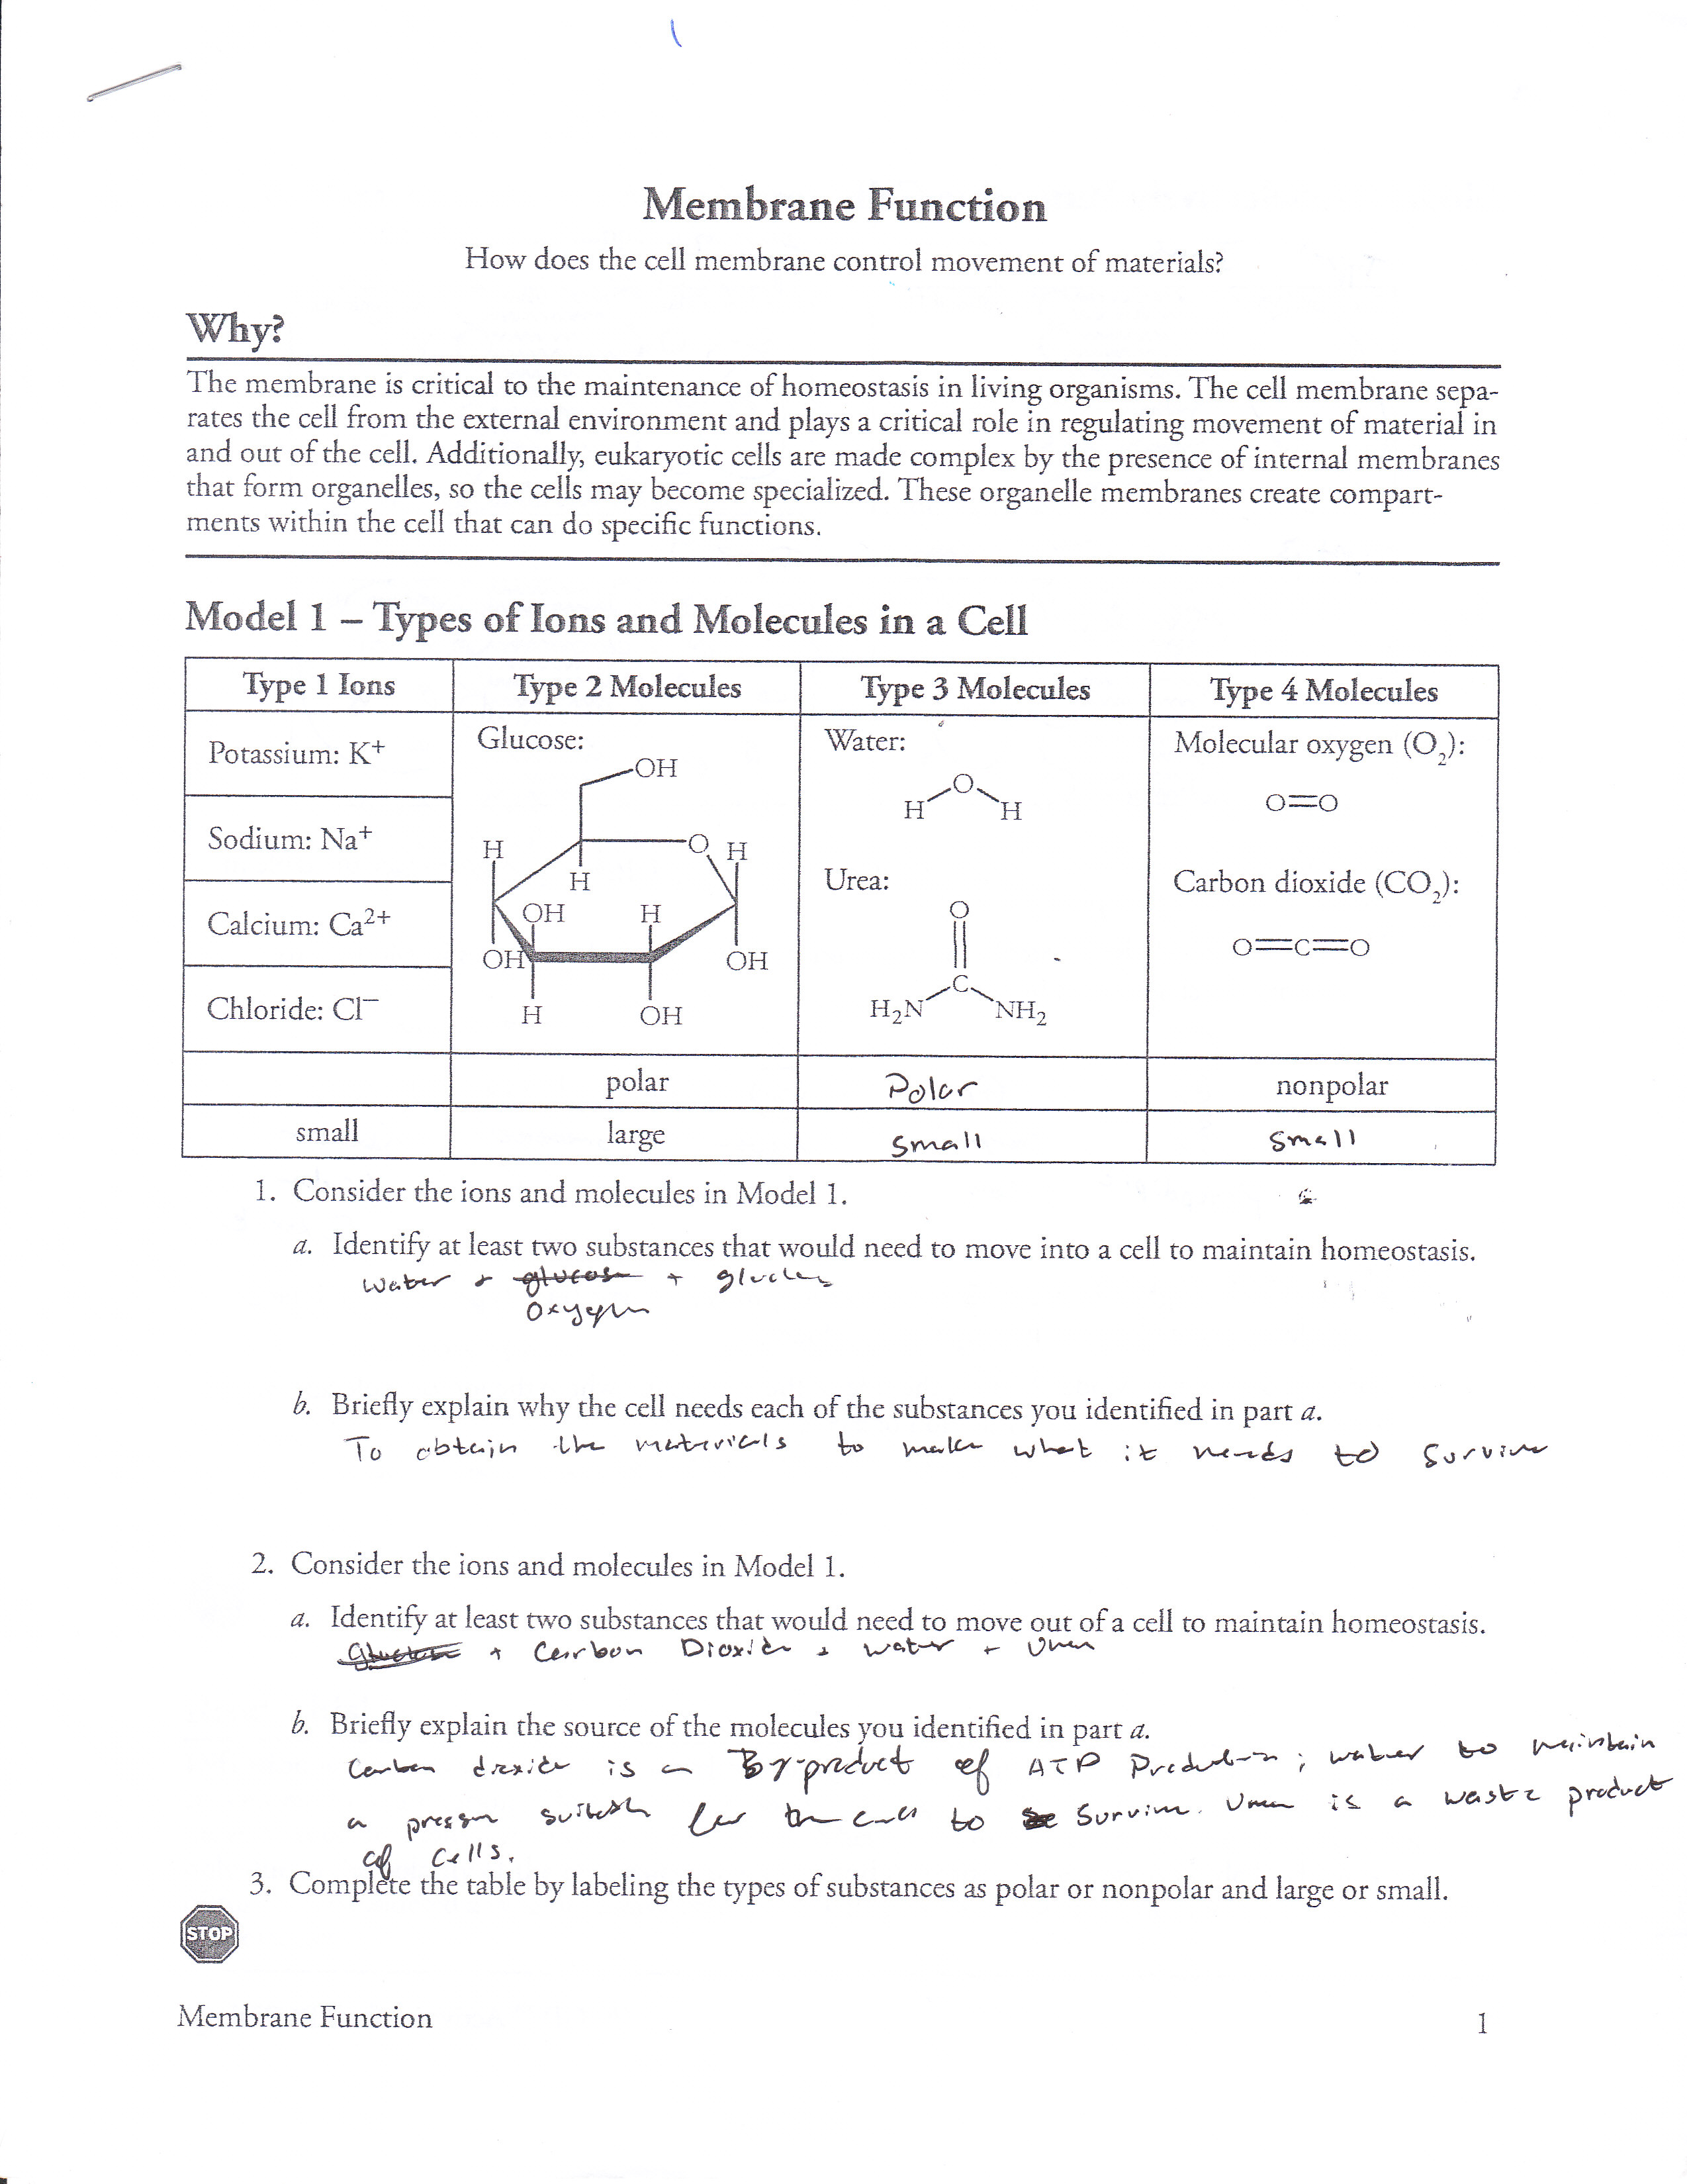 Membrane Function
How does the cell membrane control movement of materials?
Why?
The membrane is critical to the maintenance of homeostasis in living organisms. The cell membrane sepa-
rates the cell from the external environment and plays a critical role in regulating movement of material in
and out of the cell. Additionally, eukaryotic cells are made complex by the presence of internal membranes
that form organelles, so the cells may become specialized. These organelle membranes create compart-
ments within the cell that can do specific functions.
Model 1 – Types of Ions and Molecules in a Cell
Type 1 Ions Type 2 Molecules Type 3 Molecules Type 4 Molecules
Potassium: K⁺
Sodium: Na⁺
Calcium: Ca²⁺
Chloride: Cl⁻
Glucose:
OH
H O H
H
OH H
OH OH
H OH
Water:
O
H H
Urea:
O
C
H₂N NH₂
Molecular oxygen (O₂):
O=O
Carbon dioxide (CO₂):
O=C=O
polar Polar nonpolar
small large small small
1. Consider the ions and molecules in Model 1.
a. Identify at least two substances that would need to move into a cell to maintain homeostasis.
water + glucose +
oxygen
b. Briefly explain why the cell needs each of the substances you identified in part a.
To obtain the materials to make what it needs to survive
2. Consider the ions and molecules in Model 1.
a. Identify at least two substances that would need to move out of a cell to maintain homeostasis.
+ Carbon Dioxide + water + Urea
b. Briefly explain the source of the molecules you identified in part a.
Carbon dioxide is a By-product of ATP Production; water to maintain
a for the cell to survive. Urea is a waste product
of cells.
3. Complete the table by labeling the types of substances as polar or nonpolar and large or small.
STOP
Membrane Function
1